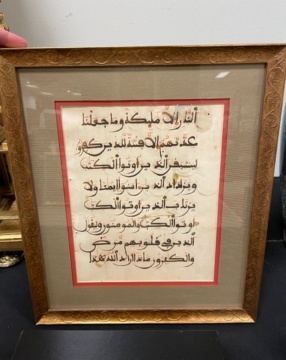 النار إلا مليكة وما جعلنا
عدتهم إلا فتنة للذين كفروا
ليستيقن الذين اوتوا الكتب
ويزداد الذين امنوا ايمنا ولا
يرتاب الذين اوتوا الكتب
والمومنون وليقول
الذين في قلوبهم مرض
والكفرون ماذا اراد الله بهذا